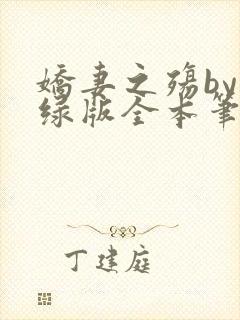 娇妻之殇by
绿版全本笔
丁建庭